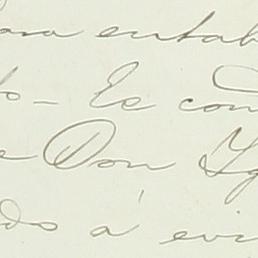 para entab
lo - Es con
e Don Ig
do á evi